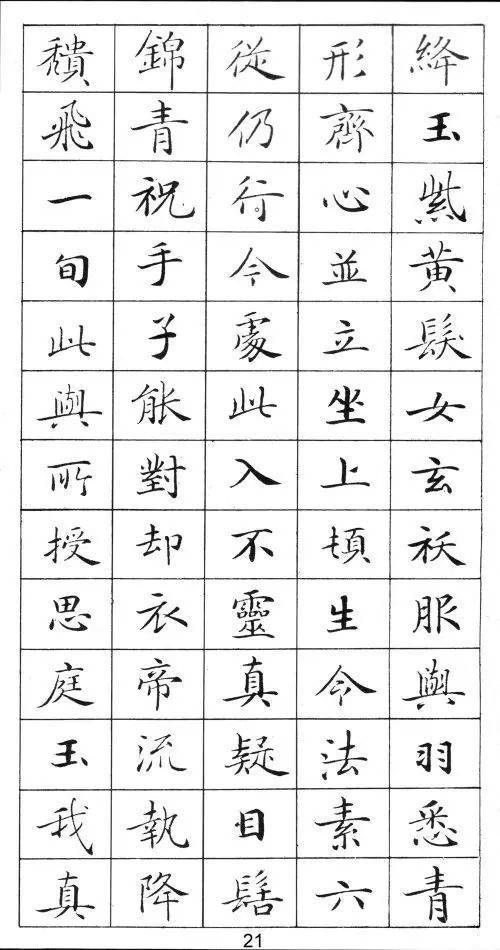 絳玉紫黃髮女玄祅服與羽悉青
形齊心並立坐上頓生令法素六
從仍行今處此入不靈真疑目髻
錦青祝手子能對却衣帝流執降
穨飛一旬此與所授思庭玉我真
21